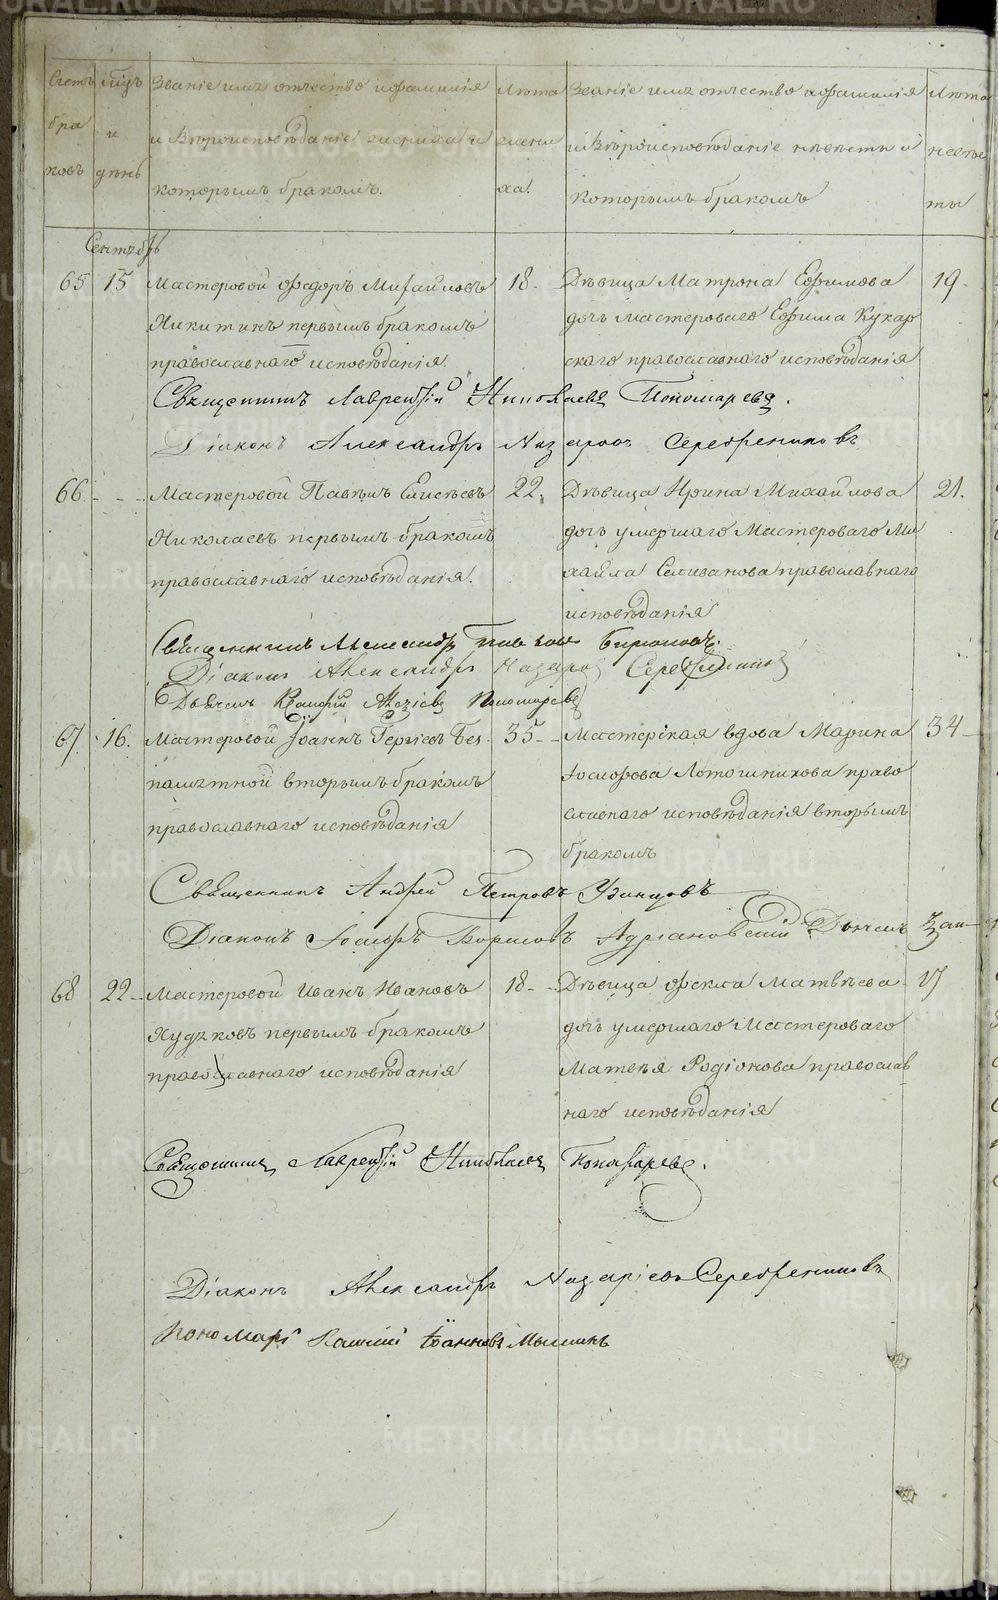 Счетъ бра ковъ
мцъ и день
Званіе имя отчество и фамилія
и Вѣроисповѣданіе жениха и
которымъ бракомъ.
Лѣта жени ха.
Званіе имя отчество и фамилія
и Вѣроисповѣданіе невѣсты и
которымъ бракомъ
Лѣта невѣс ты
Сентябрь
65 15 Мастеровой Фѣдоръ Михайловъ
Никитинъ первымъ бракомъ
православнаго исповѣданія.
18
Дѣвица Матрона Ефимова
дочь мастероваго Ефима Кукар
скаго православнаго исповѣданія
19
Священникъ Лаврентій Николаевъ Пономаревъ.
Діаконъ Александръ Назаровъ Серебрениковъ
66 Мастеровой Павелъ Елисѣевъ
Николаевъ первымъ бракомъ
православнаго исповѣданія.
22.
Дѣвица Ирина Михайлова
дочь умершаго Мастероваго Ми
хайла Селиванова православнаго
исповѣданія
21.
Священникъ Александръ Бирюковъ.
Діаконъ Александръ Назаровъ Серебрениковъ
Дьячекъ Пономаревъ
67 16. Мастеровой Іоаннъ Без
памятной вторымъ бракомъ
православнаго исповѣданія
35
Мастерская вдова Марина
Іосифова Лотошникова право
славнаго исповѣданія вторымъ
бракомъ
34
Священникъ Андрей Петровъ Удинцовъ
Діаконъ Іосифъ Борисовъ Адріановскій Дьячекъ
68 22 Мастеровой Иванъ Ивановъ
Худяковъ первымъ бракомъ
православнаго исповѣданія
18
Дѣвица Фекла Матвѣева
дочь умершаго Мастероваго
Матвѣя Родіонова православ
наго исповѣданія
17
Священникъ Лаврентій Николаевъ Пономаревъ.
Діаконъ Александръ Назаріевъ Серебрениковъ
Пономарь Іоанновъ Мышкинъ
METRIKI.GASO-URAL.RU